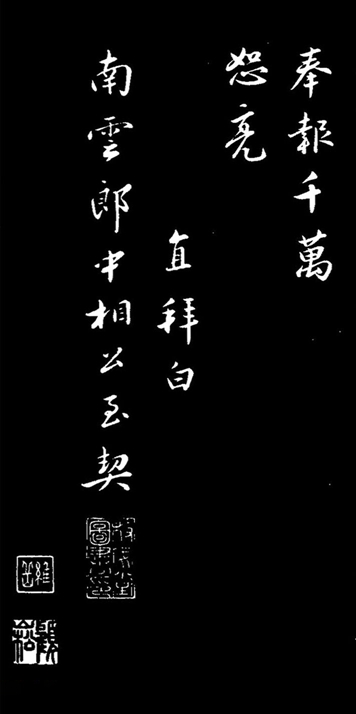 奉報千萬
恕亮
直拜白
南雲郎中相公至契